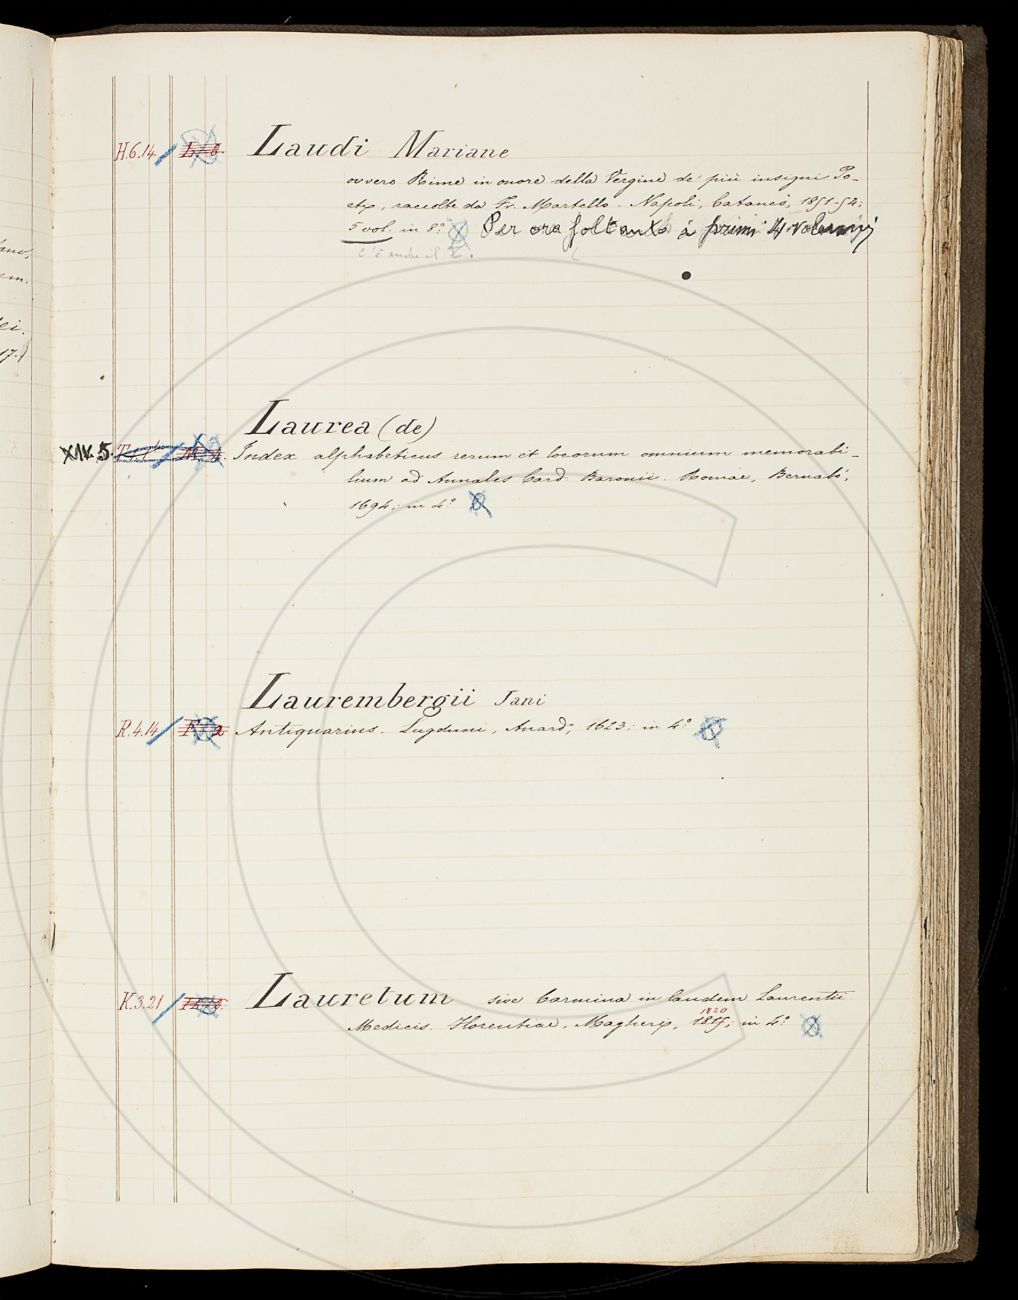 H.6.14 Laudi Mariane
ovvero Rime in onore della Vergine de' più insigni Po-
eti, raccolte da Fr. Martello. Napoli, Cataneo, 1851-54;
5 vol. in 8.° Per ora soltanto i primi 4 volumi
c'è anche il
Laurea (de)
XIV. 5. Index alphabeticus rerum et locorum omnium memorabi-
lium ad Annales Card. Baronii. Romae, Bernabò,
1694; in 4.°
Laurembergii Jani
R.4.14 Antiquarius. Lugduni, Anard, 1623; in 4.°
K.3.21 Lauretum sive Carmina in laudem Laurentii
1820
Medicis. Florentiae, Magheri, in 4.°